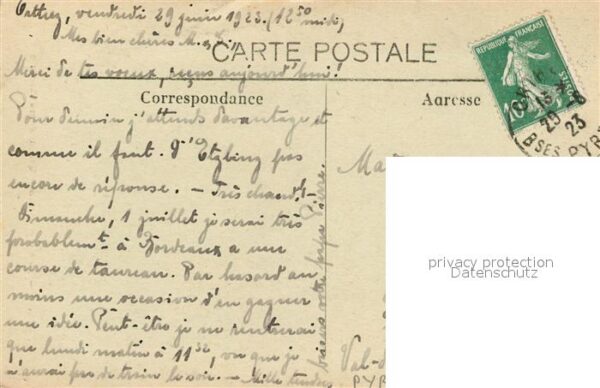 Orthez, vendredi 29 juin 1923. (12⁵⁰ midi)
Mes bien chères M. &
CARTE POSTALE
Merci de tes voeux, reçus aujourd'hui!
Correspondance
Adresse
REPUBLIQUE FRANÇAISE
10
POSTES
29-6
23
BSES PYR
Pour demain j'attends davantage et
comme il faut. D'Etzling pas
encore de réponse. — Très chaud! —
Dimanche, 1 juillet je serai très
probablemt à Bordeaux a une
course de taureau. Par hasard au
moins une occasion d'en gagner
une idée. Peut-être je ne rentrerai
que lundi matin à 11³², vu que je
n'aurai pas de train le soir. — Mille tendres
baisers votre papa Pierre.
Ma
Val-
PYR
privacy protection
Datenschutz